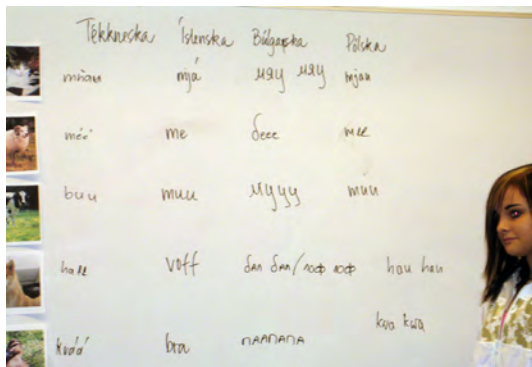 Tékkneska Íslenska Búlgarska Pólska
mňau mjá мяу мяу mjau
méé me беее mee
buu muu мууу múu
haff voff бау бау/лоф лоф hau hau
kwa kwa
kvák bra папапа